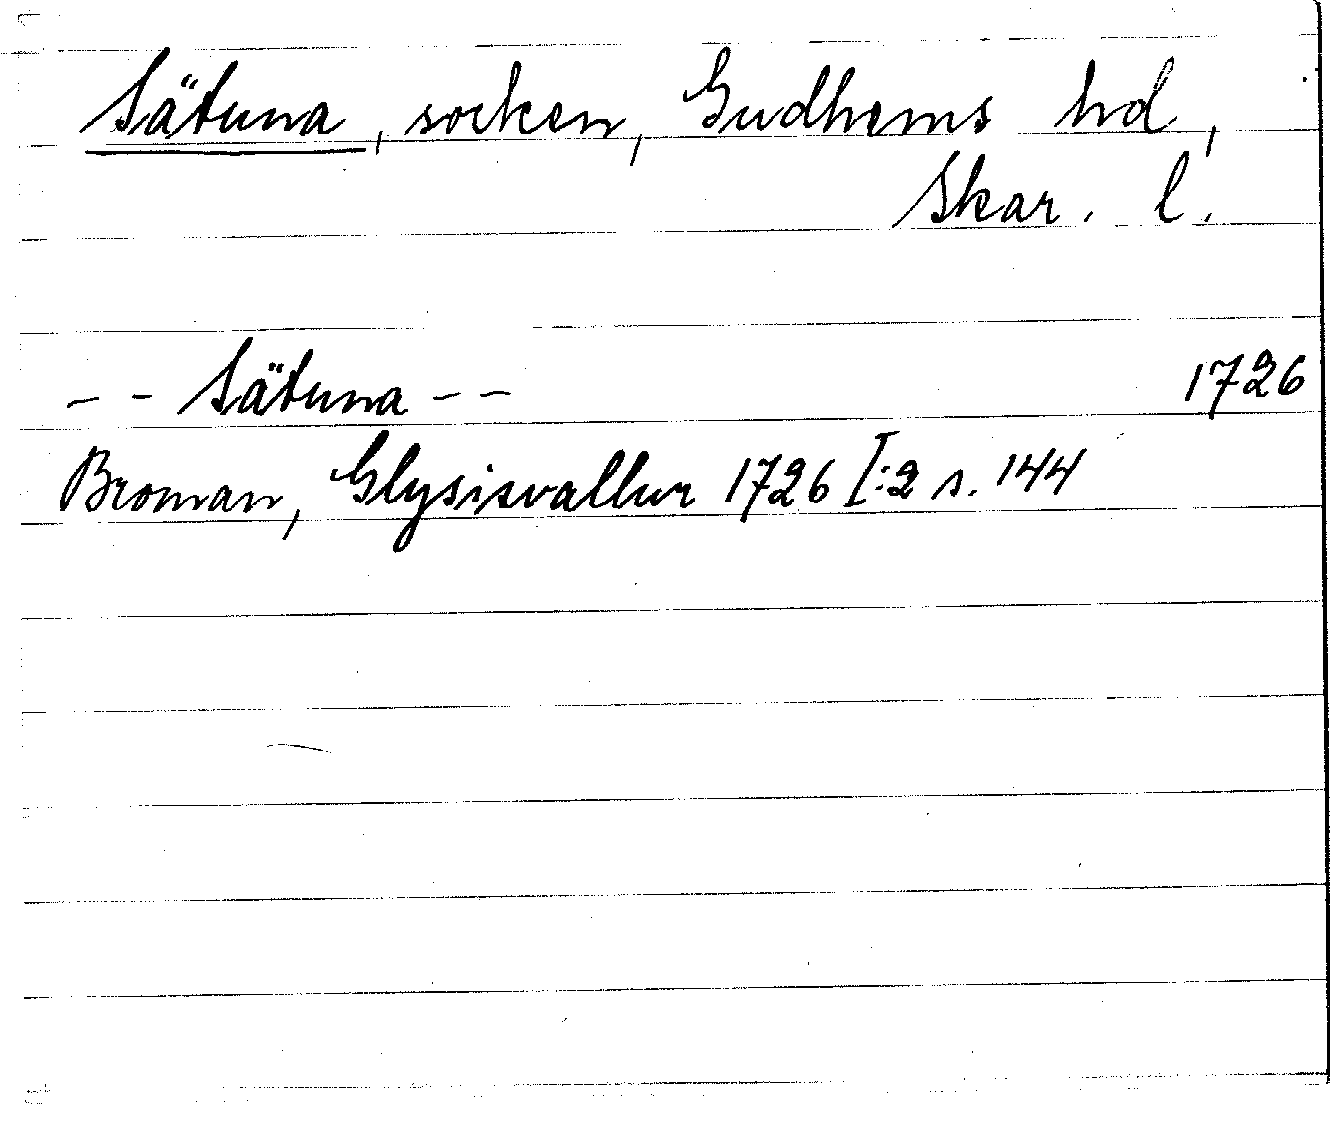 Sätuna, socken, Gudhems hd,
Skar. l.
- - Sätuna - - 1726
Broman, Glysisvallur 1726 I:2 s. 144